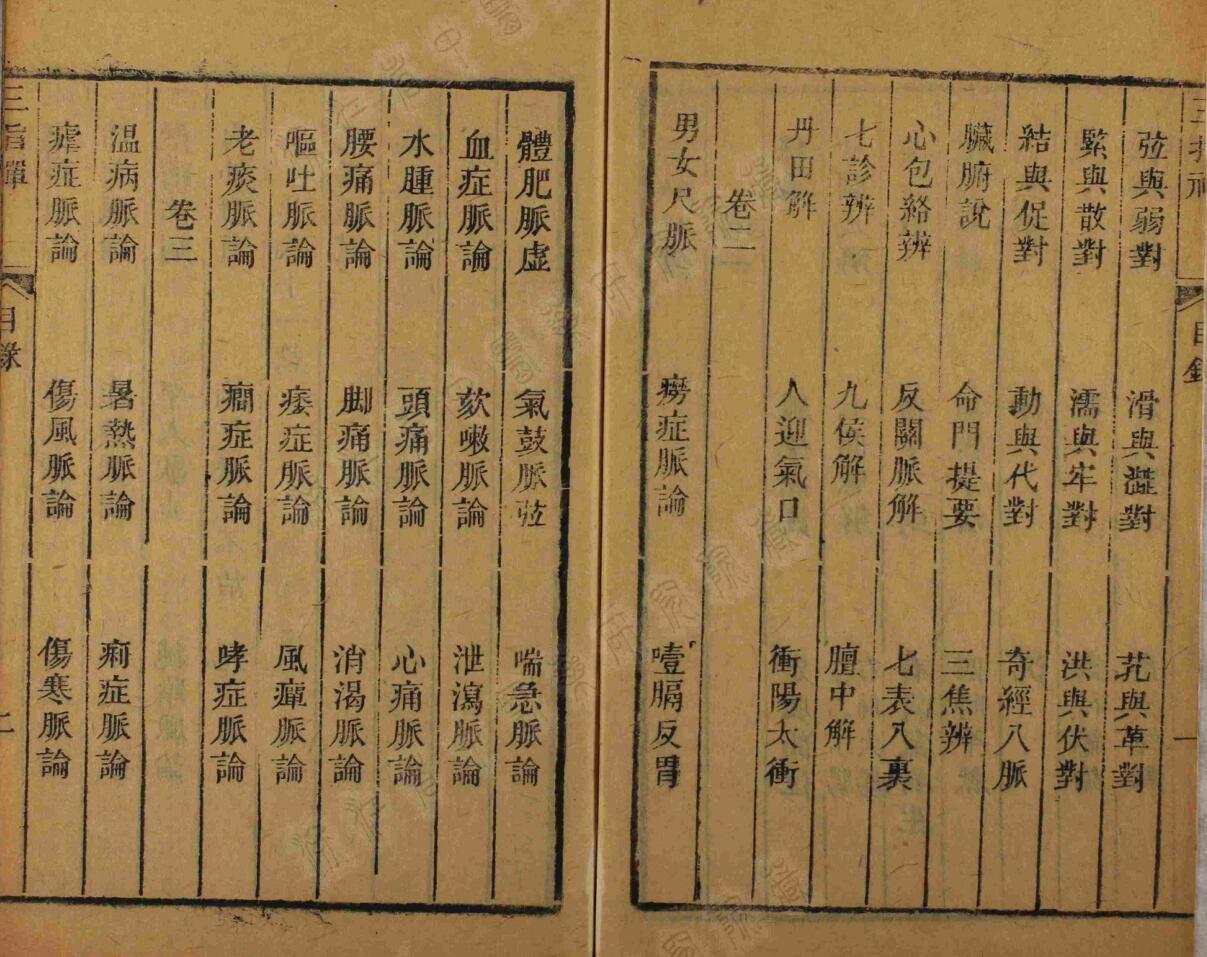 弦與弱對　滑與澀對　芤與革對
緊與散對　濡與牢對　洪與伏對
結與促對　動與代對　奇經八脈
臟腑說　命門提要　三焦辨
心包絡辨　反關脈解　七表八裏
七診辨　九侯解　膻中解
丹田解　人迎氣口　衝陽太衝
卷二
男女尺脈　癆症脈論　噎膈反胃
體肥脈虛　氣鼓脈弦　喘急脈論
血症脈論　欬嗽脈論　泄瀉脈論
水腫脈論　頭痛脈論　心痛脈論
腰痛脈論　脚痛脈論　消渴脈論
嘔吐脈論　痿症脈論　風痺脈論
老痰脈論　癇症脈論　哮症脈論
卷三
温病脈論　暑熱脈論　痢症脈論
瘧症脈論　傷風脈論　傷寒脈論
三指禪　目錄　二